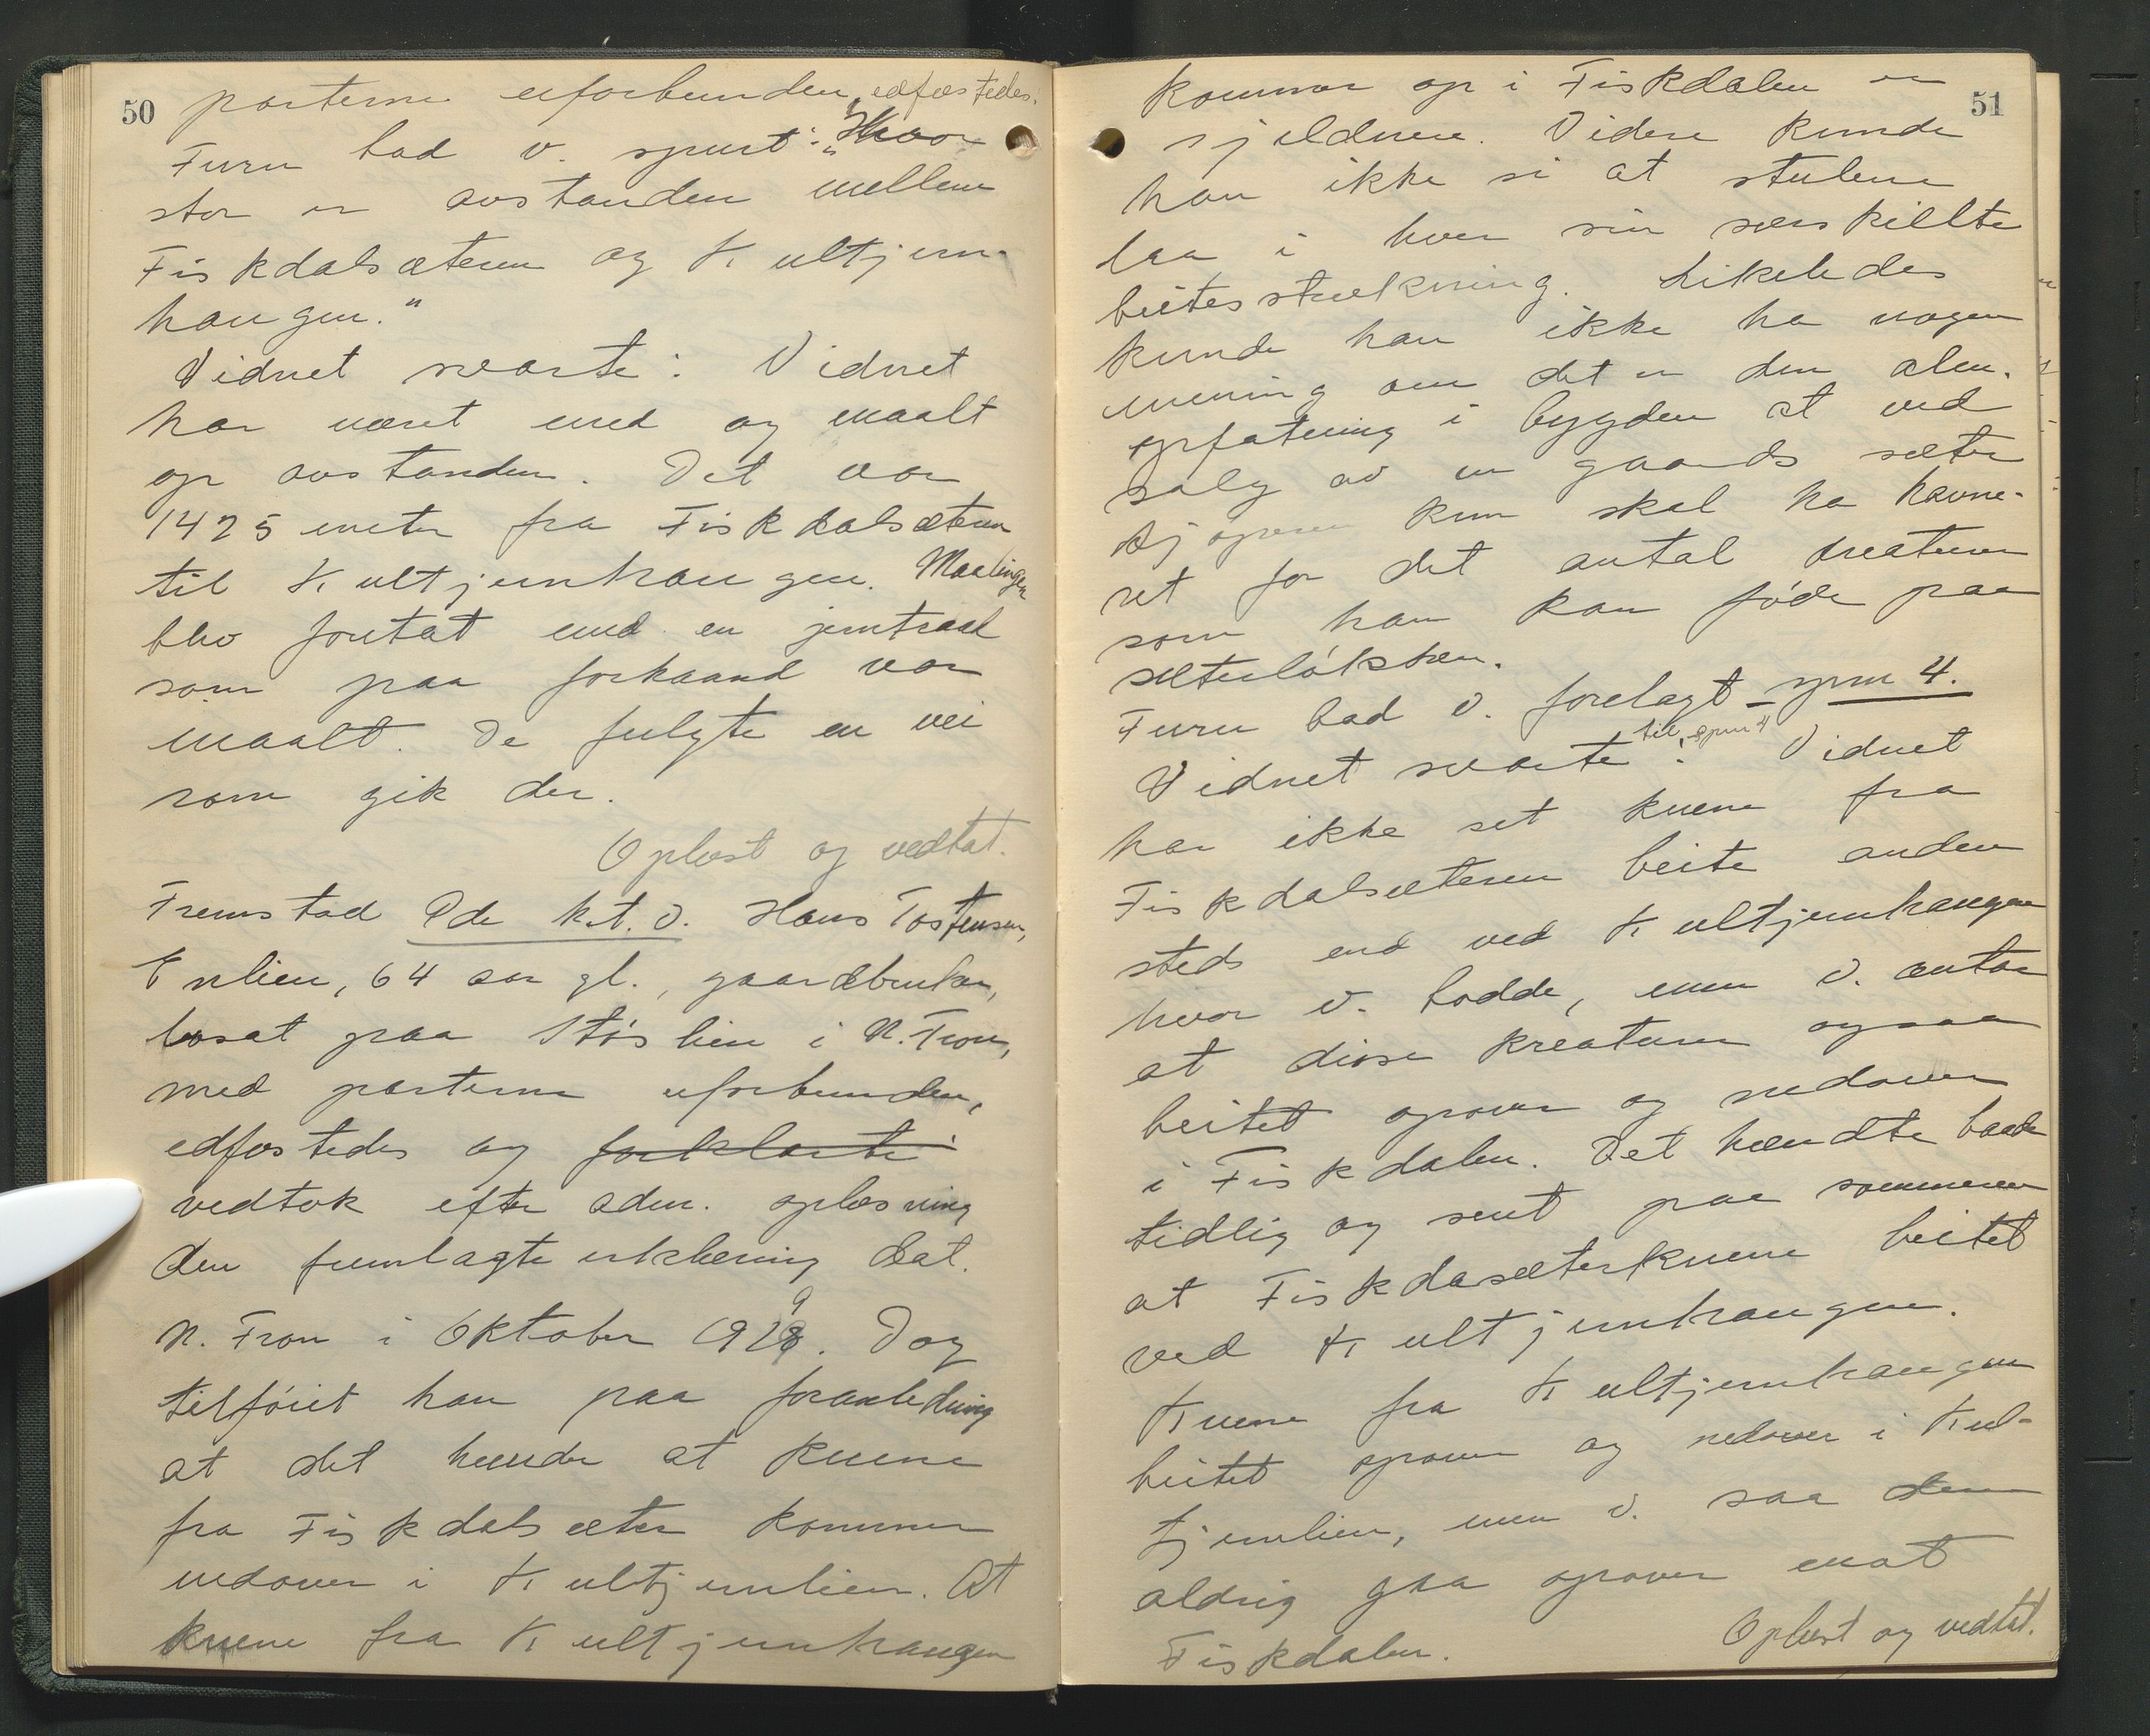 50
parterne uforbunden, edfæstedes.
Furu bad v. spurt: "Hvor
stor er avstanden mellem
Fiskdalsæteren og Kultjern-
haugen."
Vidnet svarte: Vidnet
har været med og maalt
op avstanden. Det var
1425 meter fra Fiskdalsæteren
til Kultjernhaugen. Maalingen
blev foretat med en jerntraad
som paa forhaand var
maalt. De fulgte en vei
som gik der.
Oplæst og vedtat.
Fremstod 9de k.t.v. Hans Tostensen,
Enlien, 64 aar gl., gaardbruker,
bosat paa Støslien i N. Fron,
med parterne uforbunden,
edfæstedes og forklarte:
vedtok efter adm. oplæsning
den fremlagte erklæring dat.
N. Fron i Oktober 1929. Dog
tilføiet han paa foranledning
at det hænder at kuene
fra Fiskdalsæter kommer
nedover i Kultjernlien. At
kuene fra Kultjernhaugen
51
kommer op i Fiskdalen er
sjeldnere. Videre kunde
han ikke si at stulene
laa i hver sin særskillte
beitesstrækning. Likeledes
kunde han ikke ha nogen
mening om det er den alm.
opfatning i bygden at ved
salg av en gaards sæter
kjøperen kun skal ha havne-
ret for det antal kreaturer
som han kan føde paa
sæterløkken.
Furu bad v. forelagt spm 4.
Vidnet svarte til spm 4: Vidnet
har ikke set kuene fra
Fiskdalsæteren beite anden
steds end ved Kultjernhaugen
hvor v. bodde, men v. antar
at disse kreaturer ogsaa
beitet opover og nedover
i Fiskdalen. Det hændte baade
tidlig og sent paa sommeren
at Fiskdasæterkuene beitet
ved Kultjernhaugen.
Kuene fra Kultjernhaugen
beitet opover og nedover i Kul-
tjernlien, men v. saa dem
aldrig gaa opover mot
Fiskdalen.
Oplæst og vedtat.